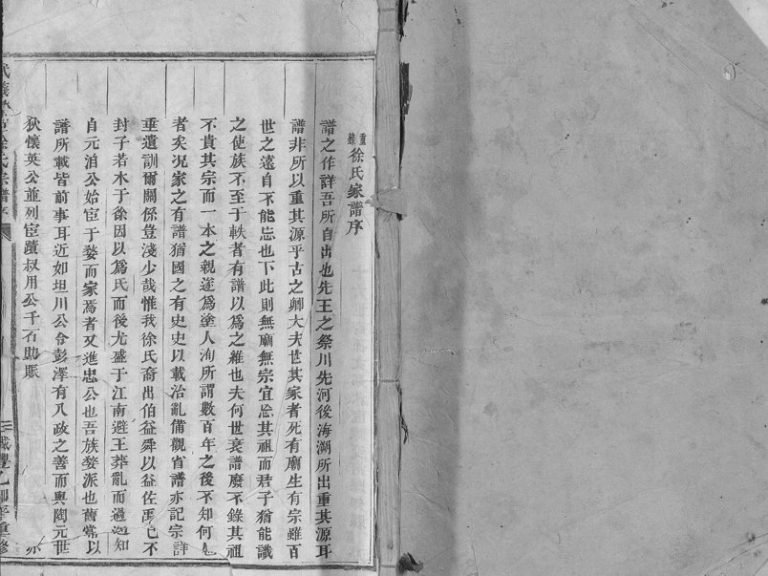 重修徐氏家譜序
譜之作詳吾所自出也先王之祭川先河後海溯所出重其源耳
譜非所以重其源乎古之卿大夫世其家者死有廟生有宗雖百
世之遠自不能忘也下此則無廟無宗宜忘其祖而君子猶能識
之使族不至于軼者有譜以爲之維也夫何世衰譜廢不錄其祖
不貴其宗而一本之親遂爲塗人洵所謂數百年之後不知何
者矣況家之有譜猶國之有史史以載治亂備觀省譜亦記宗詳
垂遺訓爾關係豈淺少哉惟我徐氏裔出伯益舜以益佐禹
不
封子若木于徐因以爲氏而後尤盛于江南避王莽亂而過
知
自元洎公始宦于婺而家焉者又進忠公也吾族婺派也舊常以
譜所載皆前事耳近如坦川公令彭澤有八政之善而與陶元世
狄懷英公並列宦蹟叔用公千石助賑
徐氏宗譜序
重修